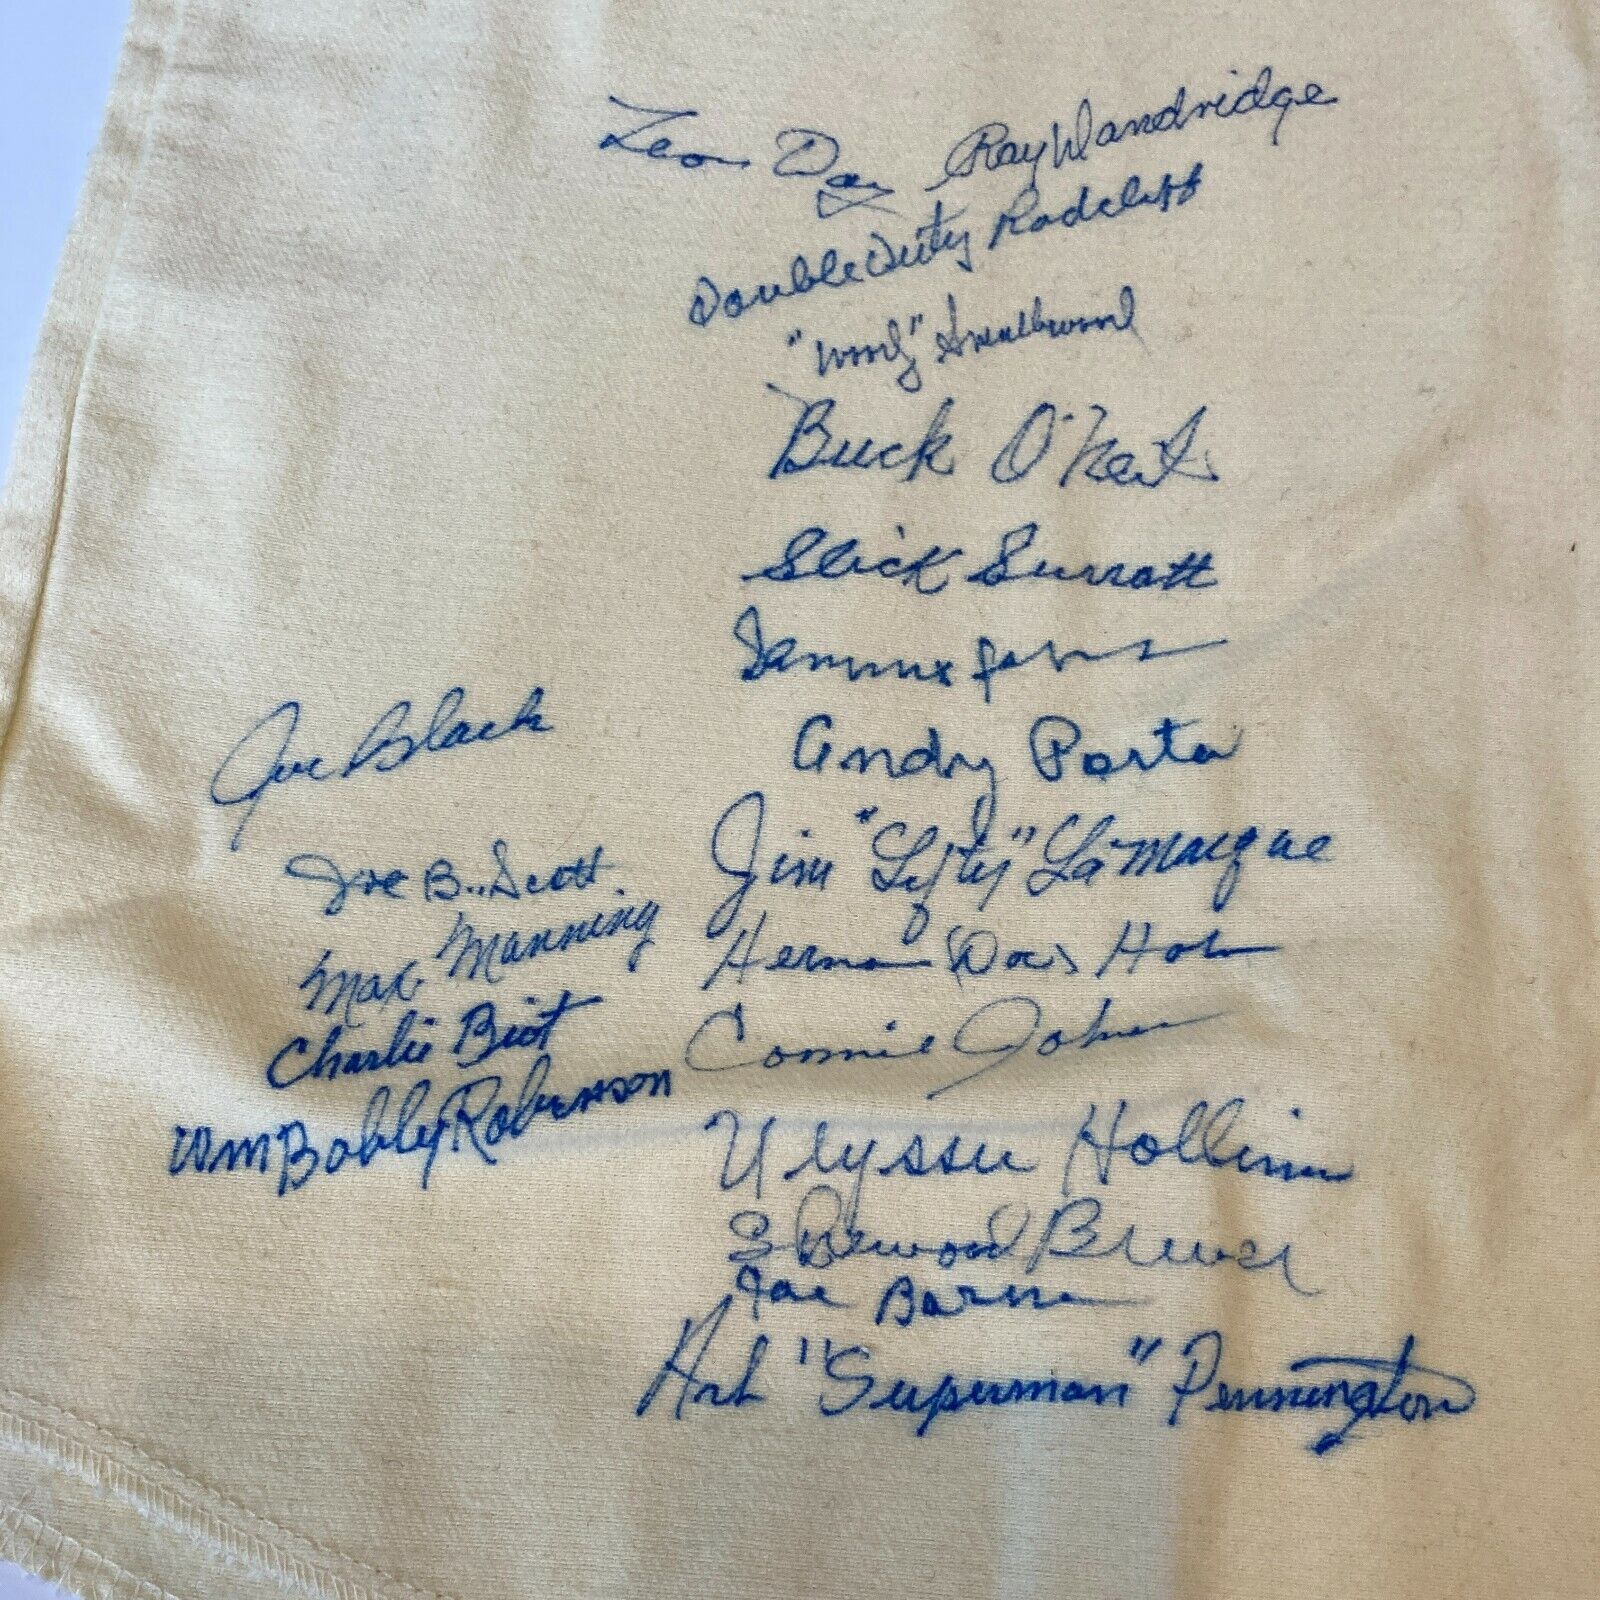 Leon Day Ray Dandridge
Double Duty Radcliff
"Woody" Smallwood
Buck O'Neil
Slick Surratt
Sammie
Andy Porter
Joe Black
Jim "Lefty" LaMarque
Joe B. Scott
Herman (Doc) Horn
Max. Manning
Connie Johnson
Charlie Biot
Wm Bobby Robinson
Ulysses Hollimon
Sherwood Brewer
Joe Barnes
Art "Superman" Pennington